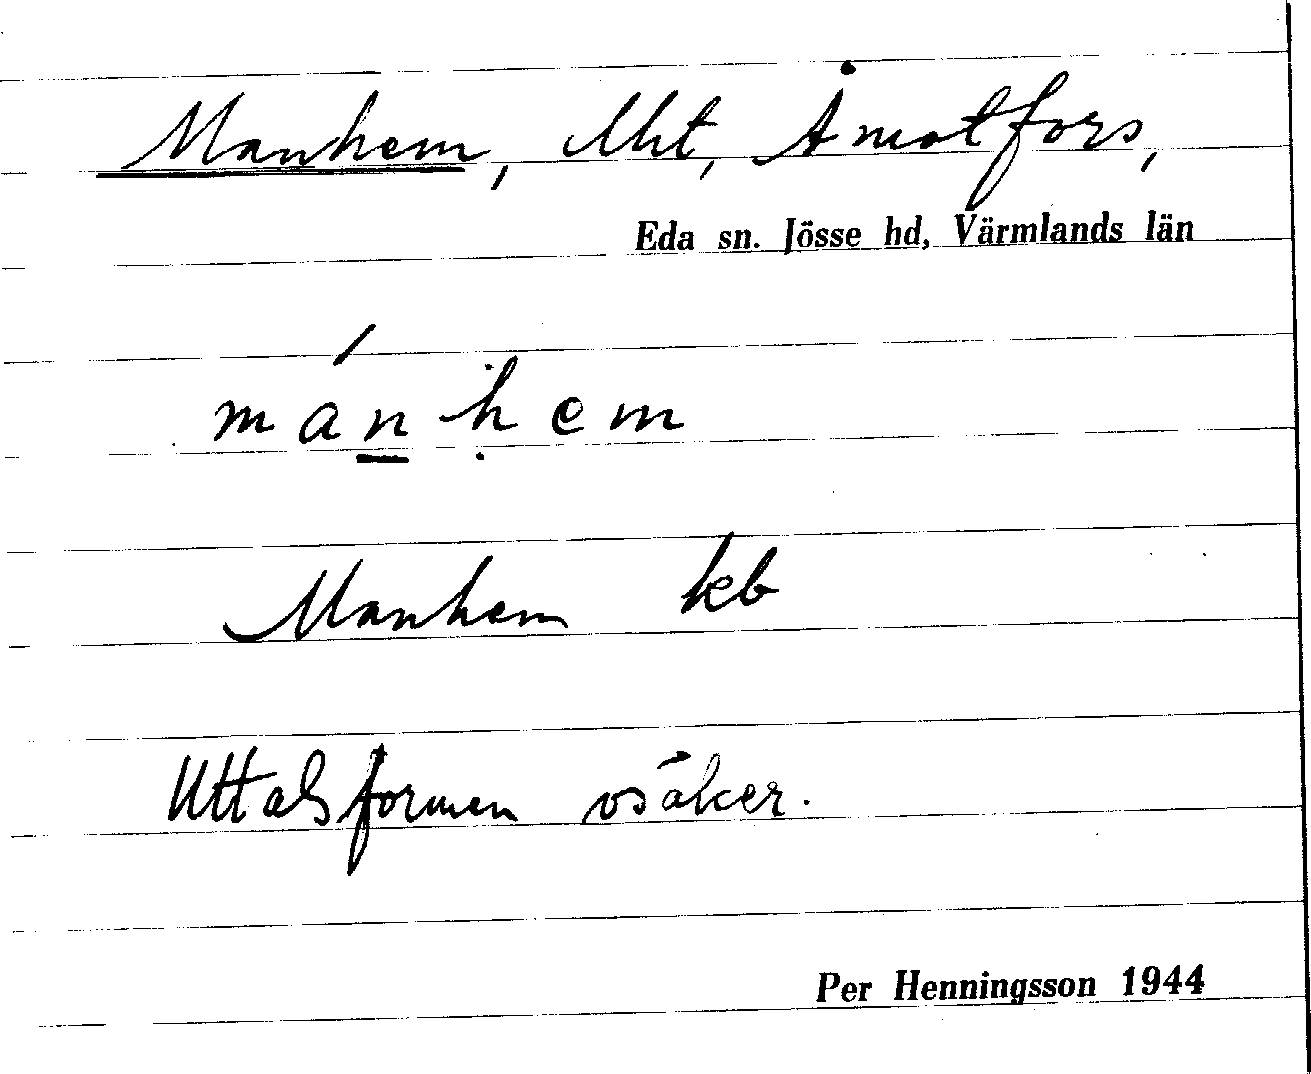 Manhem, lht, Åmotfors,
Eda sn. Jösse hd, Värmlands län
mánhem
Manhem kb
Uttalsformen osäker.
Per Henningsson 1944